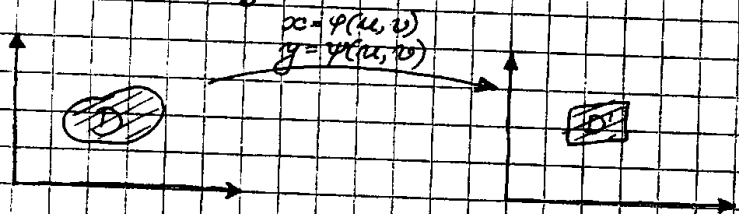 x = φ(u, v)
y = ψ(u, v)
D
D'